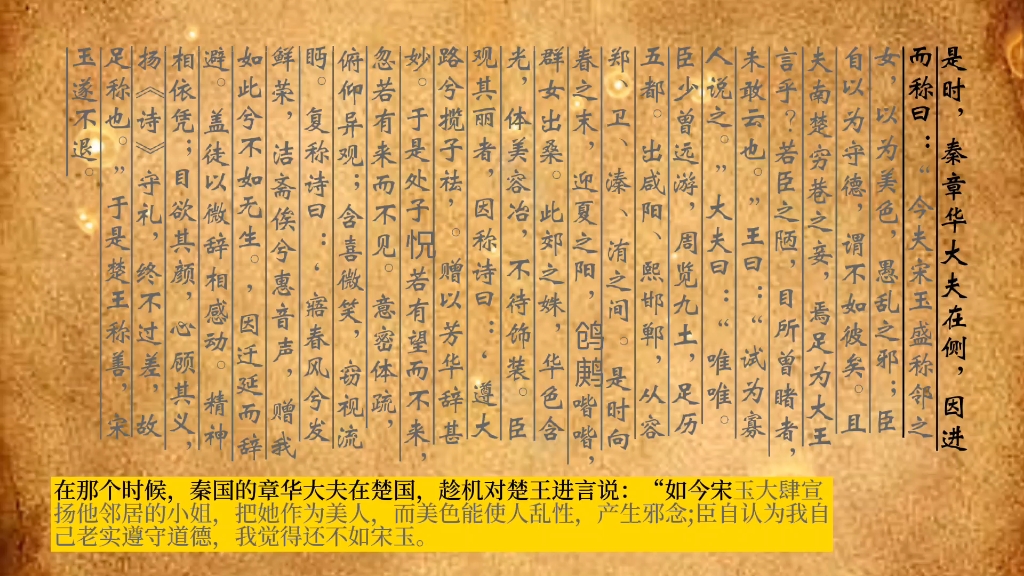 是时，秦章华大夫在侧，因进
而称曰：“今夫宋玉盛称邻之
女，以为美色，愚乱之邪；臣
自以为守德，谓不如彼矣。且
夫南楚穷巷之妾，焉足为大王
言乎？若臣之陋，目所曾睹者，
未敢云也。”王曰：“试为寡
人说之。”大夫曰：“唯唯。
臣少曾远游，周览九土，足历
五都。出咸阳、熙邯郸，从容
郑、卫、溱、洧之间。是时向
春之末，迎夏之阳，鸧鹒喈喈，
群女出桑。此郊之姝，华色含
光，体美容冶，不待饰装。臣
观其丽者，因称诗曰：‘遵大
路兮揽子祛，。赠以芳华辞甚
妙。于是处子怳若有望而不来，
忽若有来而不见。意密体疏，
俯仰异观；含喜微笑，窃视流
眄。复称诗曰：‘寤春风兮发
鲜荣，洁斋俟兮惠音声，赠我
如此兮不如无生。，因迁延而辞
避。盖徒以微辞相感动。精神
相依凭；目欲其颜，心顾其义，
扬《诗》守礼，终不过差，故
足称也。”于是楚王称善，宋
玉遂不退。
在那个时候，秦国的章华大夫在楚国，趁机对楚王进言说：“如今宋玉大肆宣
扬他邻居的小姐，把她作为美人，而美色能使人乱性，产生邪念;臣自认为我自
己老实遵守道德，我觉得还不如宋玉。